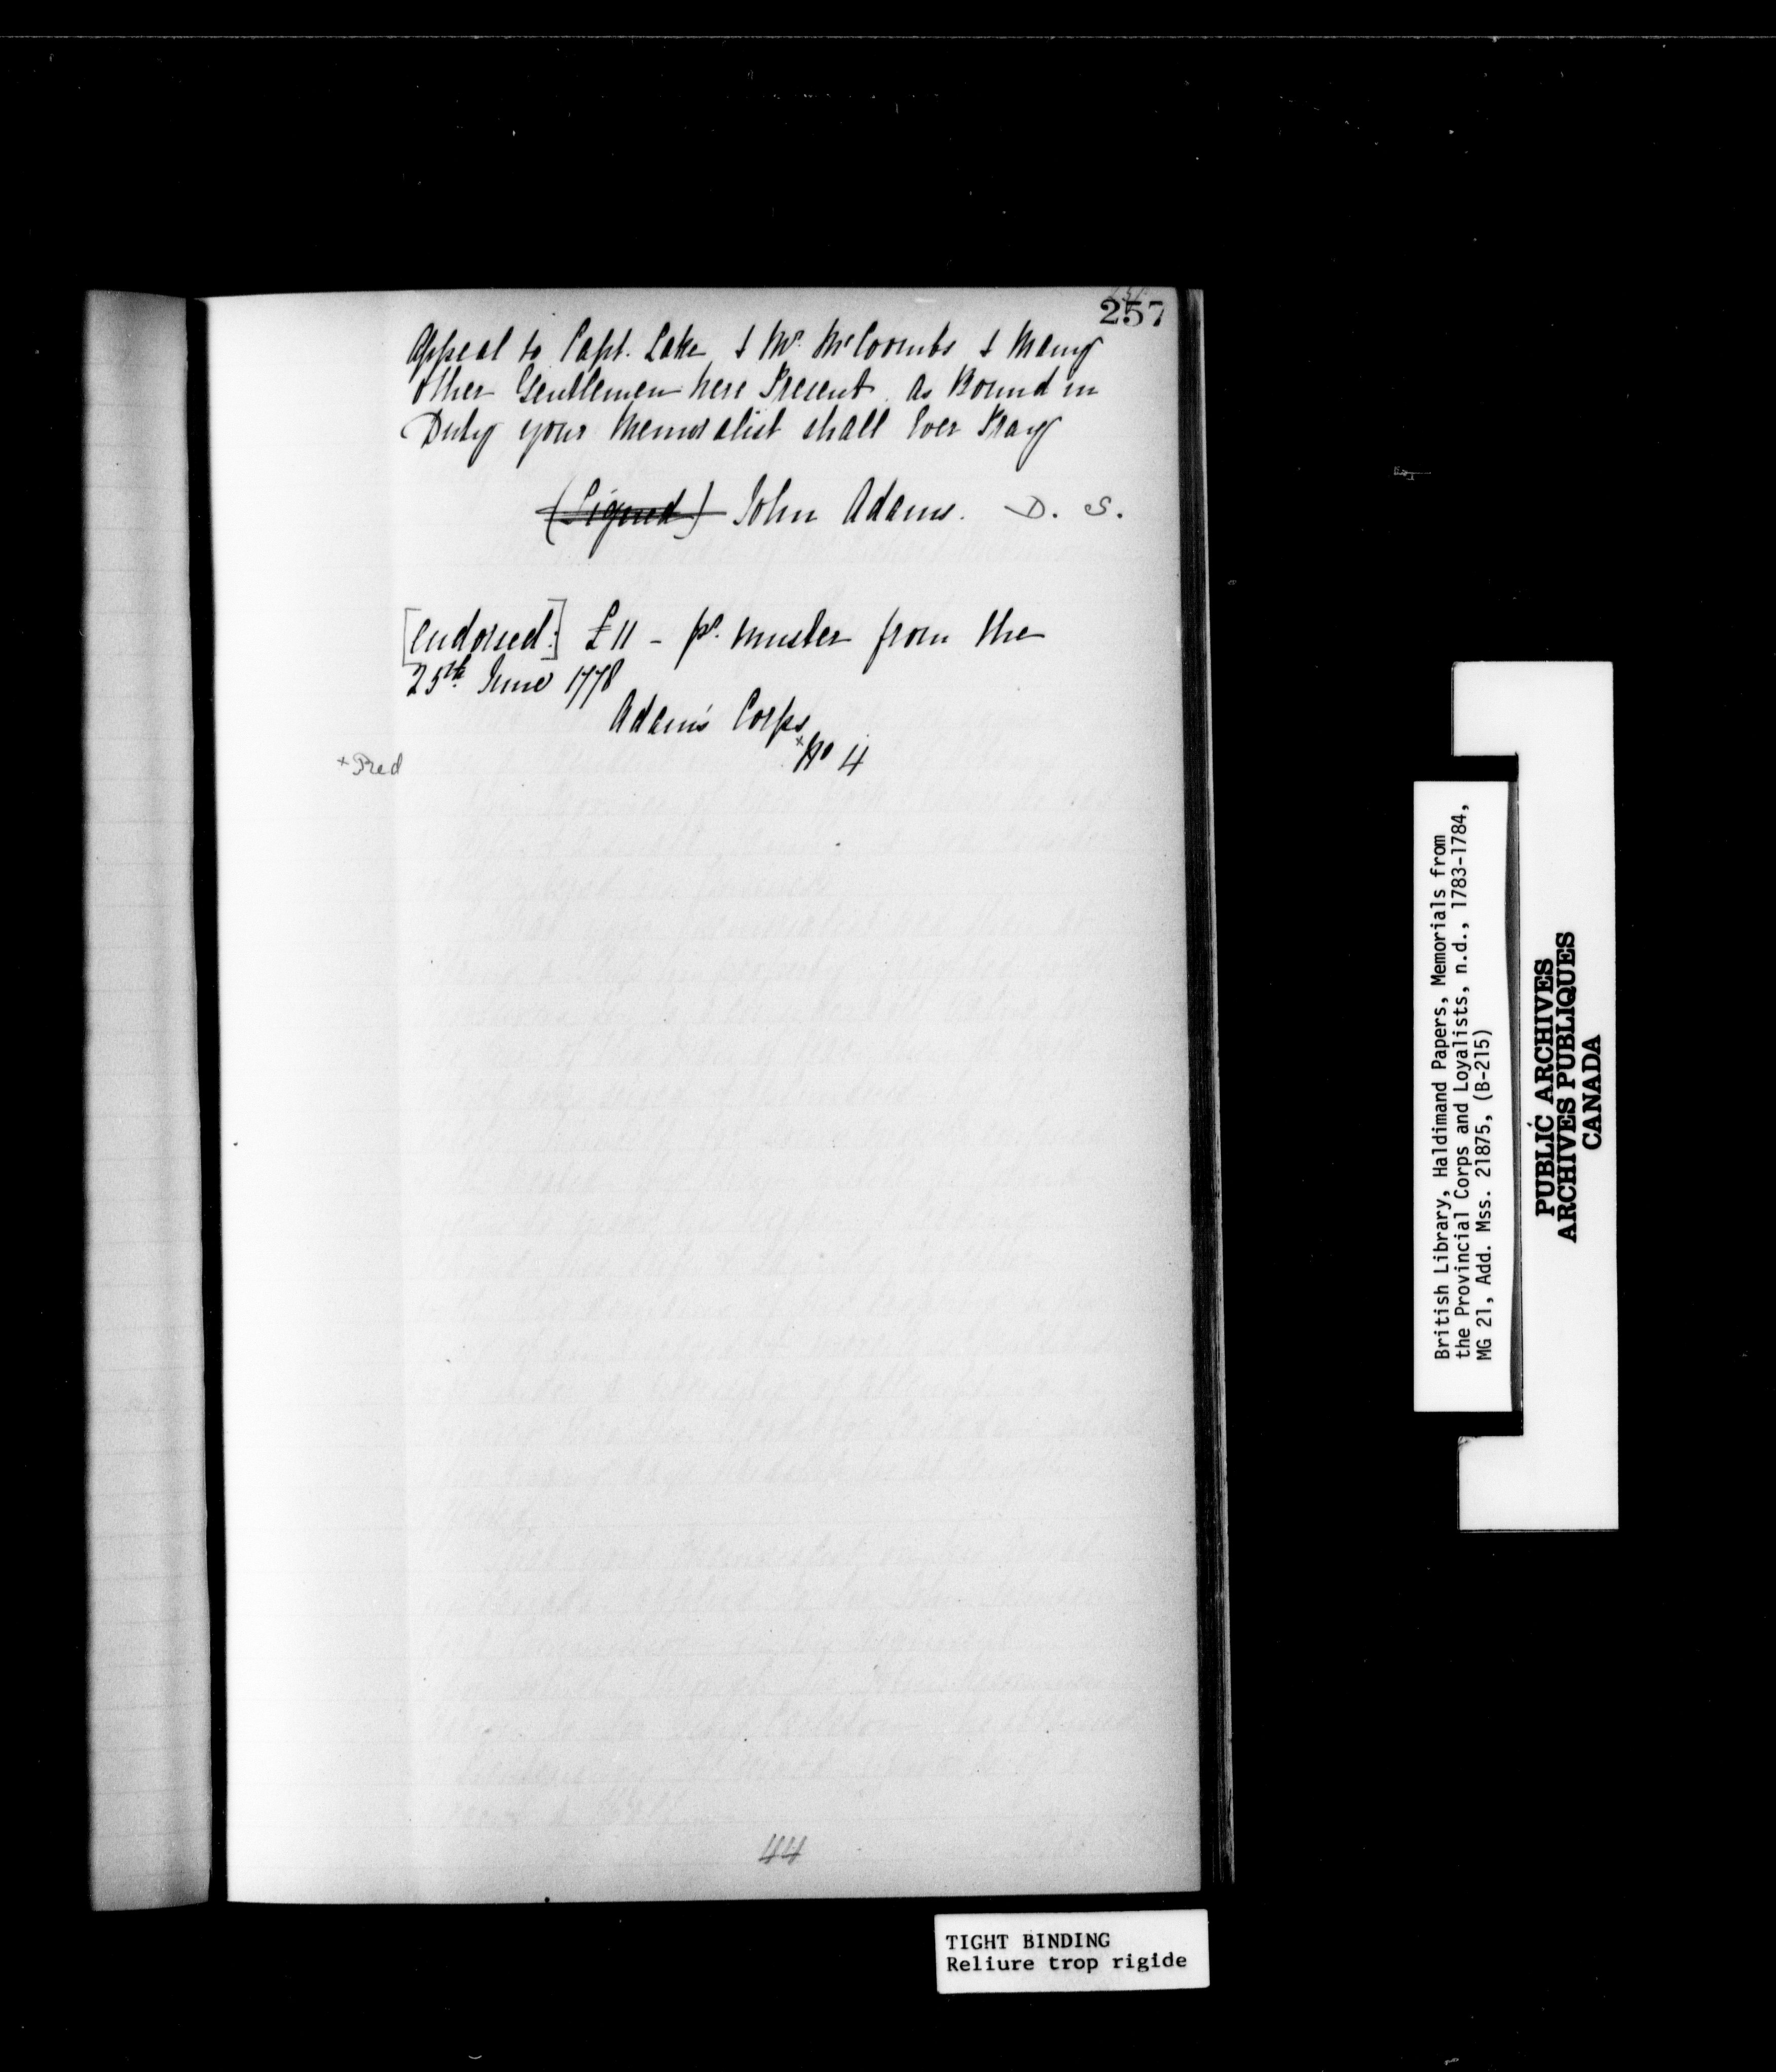 257
Appeal to Capt. Lake & Mr. McCoombs & Many
other Gentlemen here Present. As Bound in
Duty your Memorialist shall Ever Pray
(Signed) John Adams. D. S.
[endorsed:] £11 - pr. muster from the
25th June 1778
Adam's Corps
x No 4
x Red
44
British Library, Haldimand Papers, Memorials from
the Provincial Corps and Loyalists, n.d., 1783-1784,
MG 21, Add. Mss. 21875, (B-215)
PUBLIC ARCHIVES
ARCHIVES PUBLIQUES
CANADA
TIGHT BINDING
Reliure trop rigide